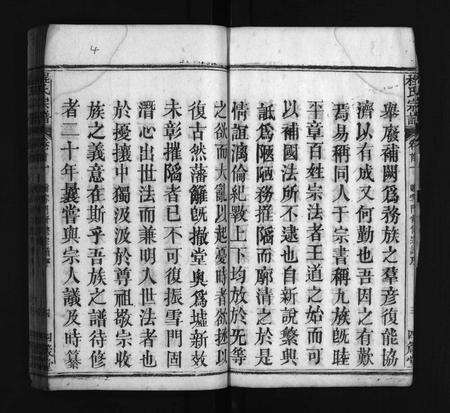 舉廢補闕爲務族之羣彥復能協
濟以有成又何勤也吾因之有歎
焉易稱同人于宗書稱九族旣睦
平章百姓宗法者王道之始而可
以補國法所不逮也自新說繁興
詆爲陋陋務摧陷而廓清之於是
情誼漓倫紀斁上下均放於无等
之欲而大亂以起憂時者欲拯以
復古然藩籬旣撤堂奧爲墟新效
未彰摧陷者已不可復振雪門固
潛心出世法而兼明人世法者也
於擾攘中獨汲汲於尊祖敬宗收
族之義意在斯乎吾族之譜待修
者二十年曩嘗與宗人議及時纂
程氏宗譜